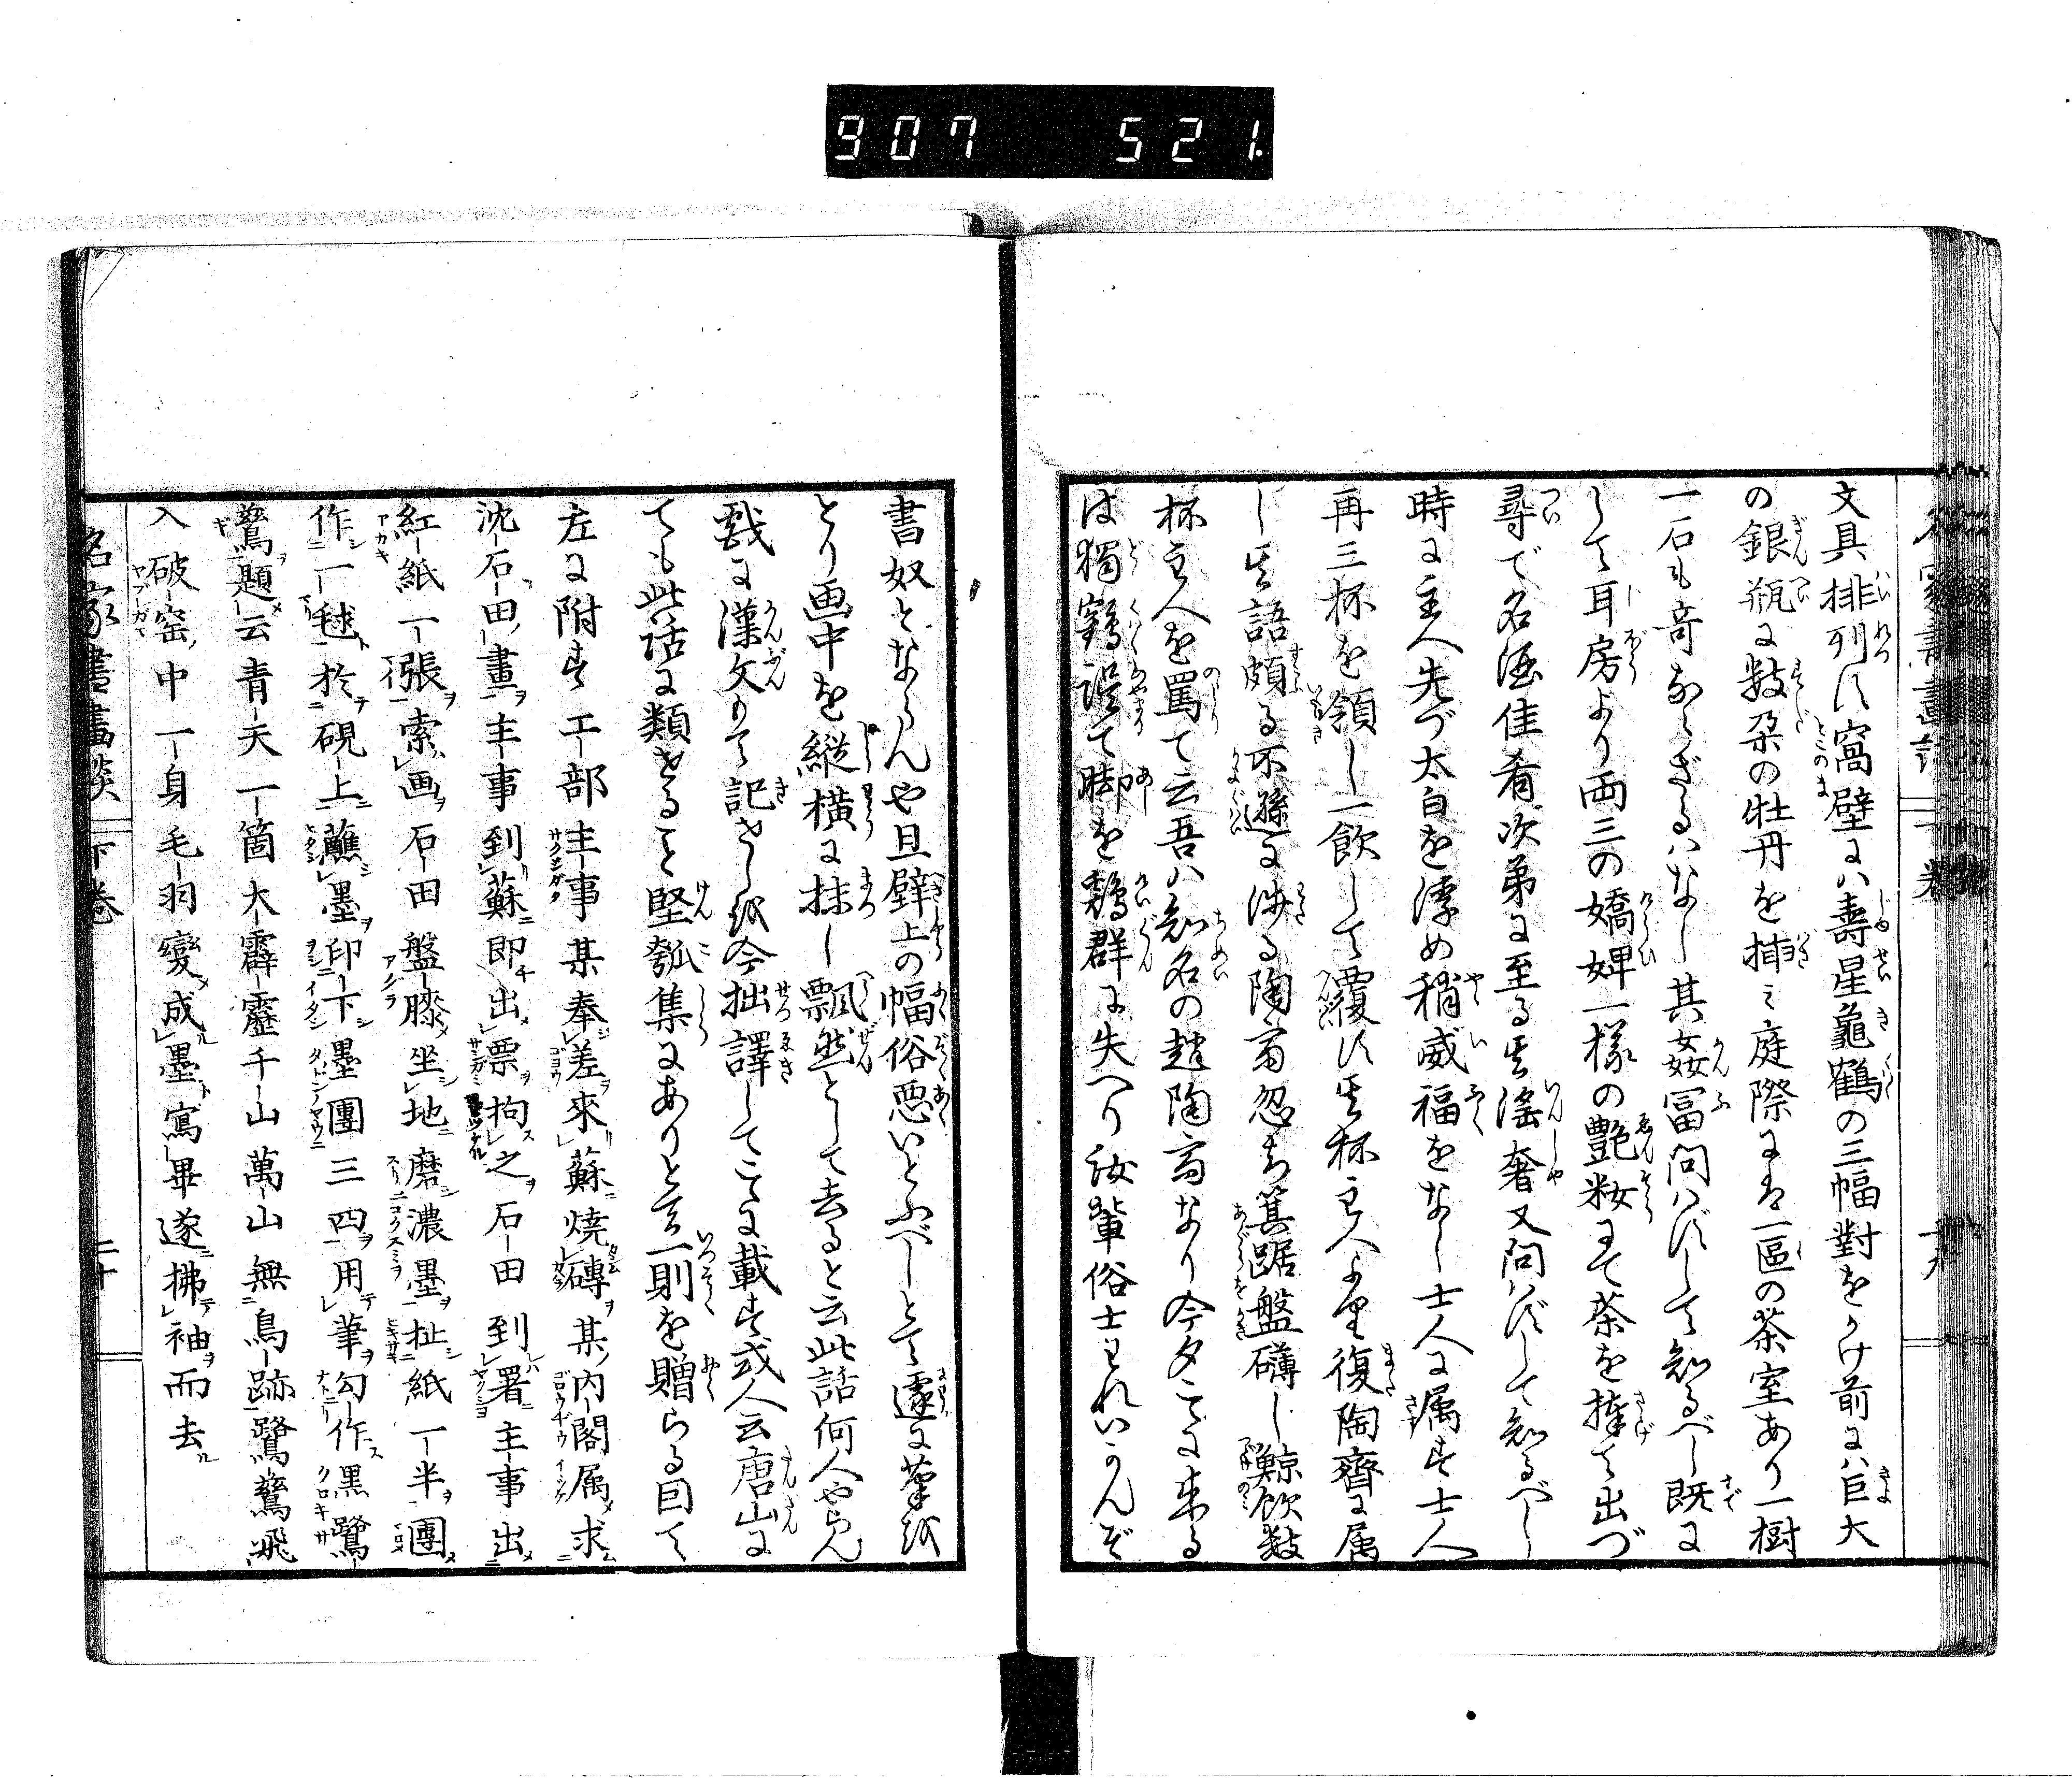 907 521.
文具排列す窩壁には壽星龜鶴の三幅對をかけ前には巨大
の銀瓶に數朶の牡丹を挿み庭際には一區の茶室あり一樹
一石も奇ならざるはなし其姦冨問はずして知るべし既に
して耳房より両三の嬌婢一様の艶粧にて茶を捧て出づ
尋で名酒佳肴次第に至る其滛奢又問はずして知るべし
時に主人先づ太白を浮め稍威福をなし士人に属す士人
再三杯を領し一飲して覆す其杯主人より復陶齊に属
し其語頗る不遜に渉る陶斎忽ち箕踞盤礴し鯨飲数
杯主人を罵て云吾は知名の趙陶斎なり今夕こゝに来る
は獨鶴誤て脚を鶏群に失へり汝輩俗士われいかんぞ
書奴とならんや且壁上の幅俗悪いとふべしとて遽に筆を
とり画中を縦横に抹し飄然として去ると云此話何人やらん
戯に漢文もて記せしを今拙譯してこゝに載す或人云唐山に
ても此話に類せること堅瓠集にありと云一則を贈らる因て
左に附す工部主事某奉差來蘇燒磚其内閣属求
沈石田畫主事到蘇即出票拘之石田到署主事出
紅紙一張索画石田盤膝坐地磨濃墨扯紙一半團
作一毬於硯上蘸墨印下墨團三四用筆勾作黒鷺
鶿題云青天一箇大霹靂千山萬山無鳥跡鷺鶿飛
入破窑中一身毛羽變成墨寫畢遂拂袖而去
名家書畫談 下卷 二十